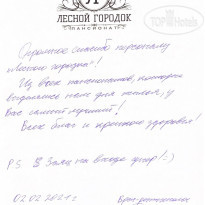 Л
ЛЕСНОЙ ГОРОДОК
ПАНСИОНАТ
TopHotels
Огромное спасибо персоналу
"Лесной городок"!
Из всех пансионатов, которые
выделялись мне для отдыха, у
Вас самый лучший!
Всех благ и крепкого здоровья!
P.S. В Зале на входе :)
02.02.2021г.